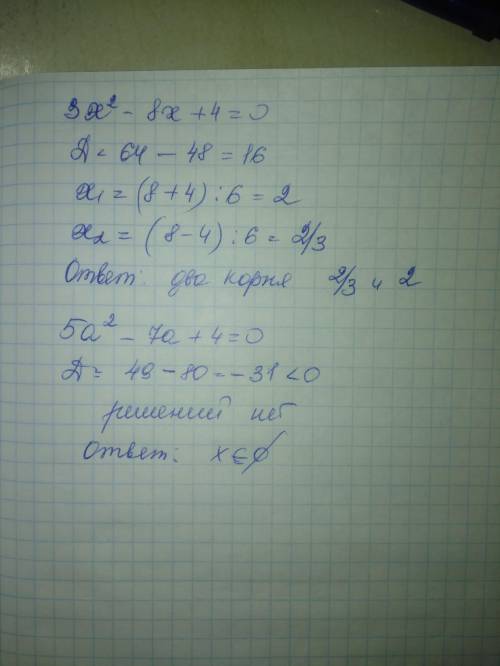 3x² - 8x + 4 = 0
Д = 64 - 48 = 16
x₁ = (8 + 4) : 6 = 2
x₂ = (8 - 4) : 6 = 2/3
Ответ: два корня 2/3 и 2
5a² - 7a + 4 = 0
Д = 49 - 80 = -31 < 0
решений нет
Ответ: x ∈ ∅